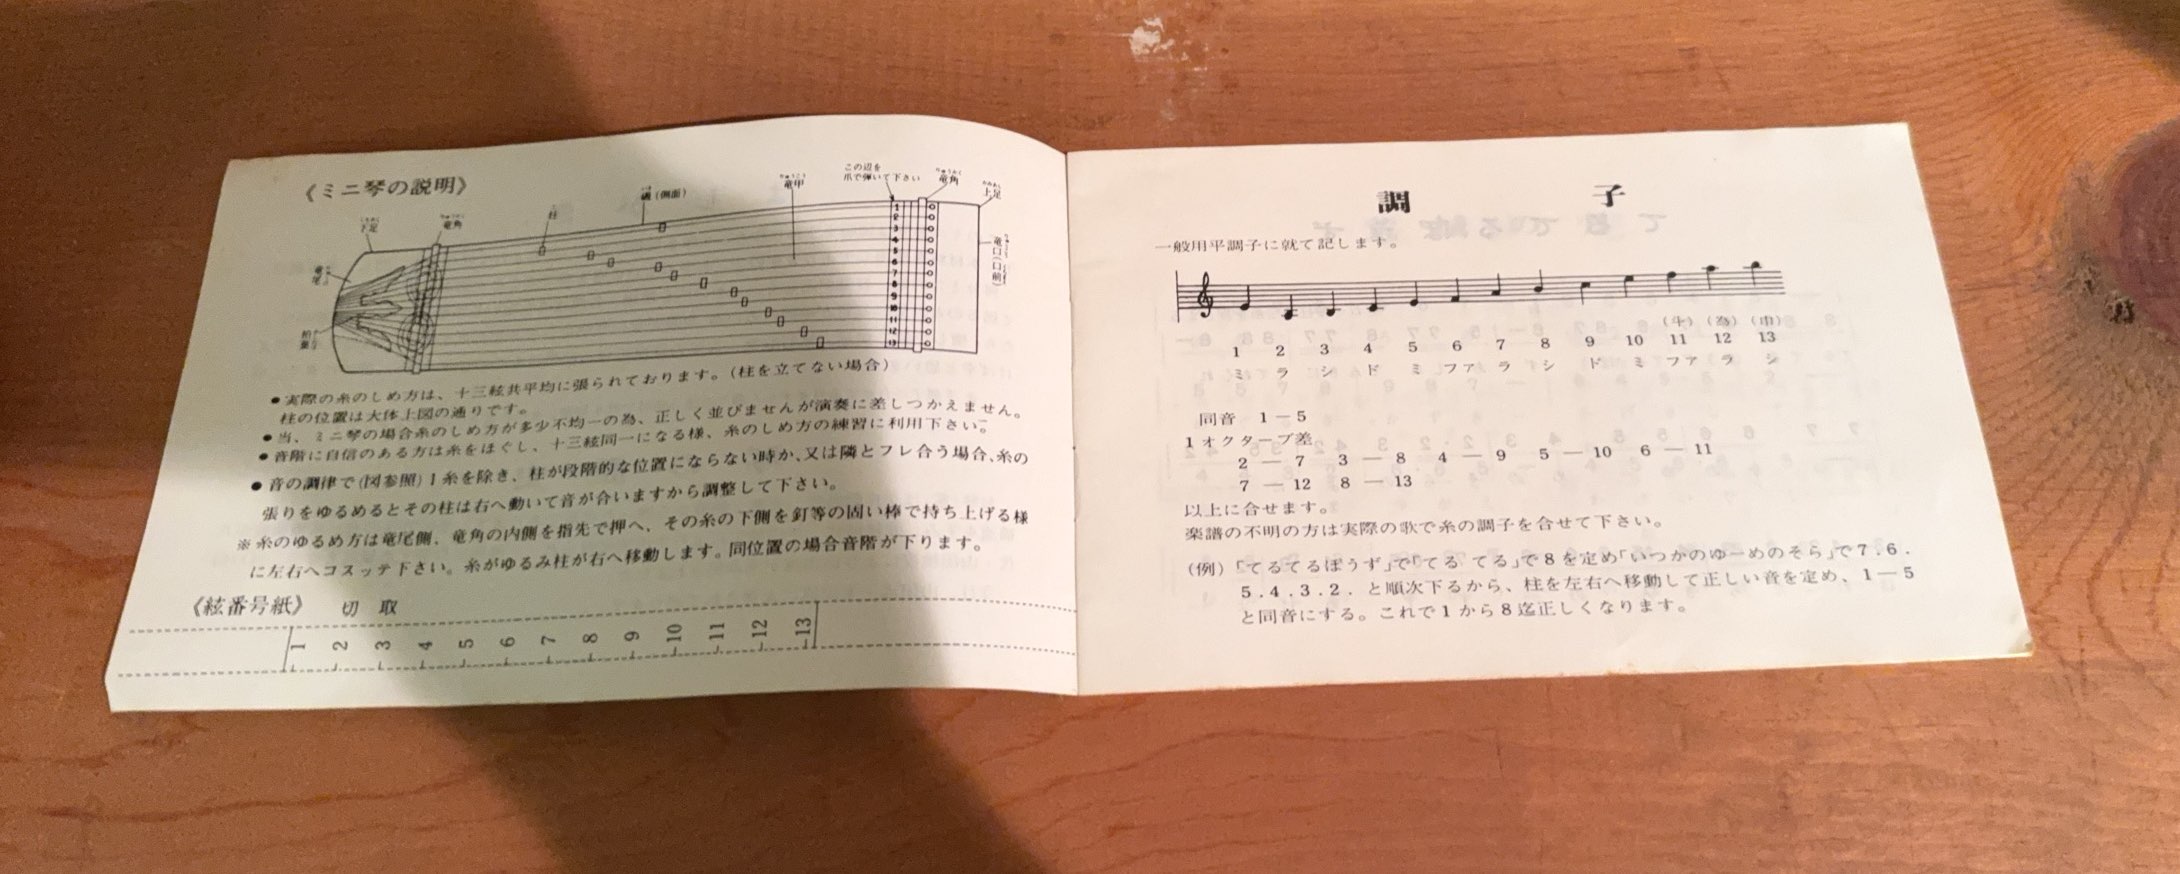 《ミニ琴の説明》
この辺を
爪で弾いて下さい
りゅうこう
竜甲
りゅうかく
竜角
上足
磯(側面)
柱
りゅうかく
竜角
下足
竜尾
柏葉
竜口(口前)
1
2
3
4
5
6
7
8
9
10
11
12
13
●実際の糸のしめ方は、十三絃共平均に張られております。(柱を立てない場合)
柱の位置は大体上図の通りです。
●当、ミニ琴の場合糸のしめ方が多少不均一の為、正しく並びませんが演奏に差しつかえません。
●音階に自信のある方は糸をほぐし、十三絃同一になる様、糸のしめ方の練習に利用下さい。
●音の調律で(図参照)1糸を除き、柱が段階的な位置にならない時か、又は隣とフレ合う場合、糸の
張りをゆるめるとその柱は右へ動いて音が合いますから調整して下さい。
※糸のゆるめ方は竜尾側、竜角の内側を指先で押へ、その糸の下側を釘等の固い棒で持ち上げる様
に左右へコスッテ下さい。糸がゆるみ柱が右へ移動します。同位置の場合音階が下ります。
《絃番号紙》 切取
1 2 3 4 5 6 7 8 9 10 11 12 13
調 子
一般用平調子に就て記します。
(斗) (為) (巾)
1 2 3 4 5 6 7 8 9 10 11 12 13
ミ ラ シ ド ミ ファ ラ シ ド ミ ファ ラ シ
同音 1―5
1オクターブ差
2―7 3―8 4―9 5―10 6―11
7―12 8―13
以上に合せます。
楽譜の不明の方は実際の歌で糸の調子を合せて下さい。
(例)「てるてるぼうず」で「てる てる」で8を定め「いつかのゆーめのそら」で7.6.
5.4.3.2.と順次下るから、柱を左右へ移動して正しい音を定め、1―5
と同音にする。これで1から8迄正しくなります。